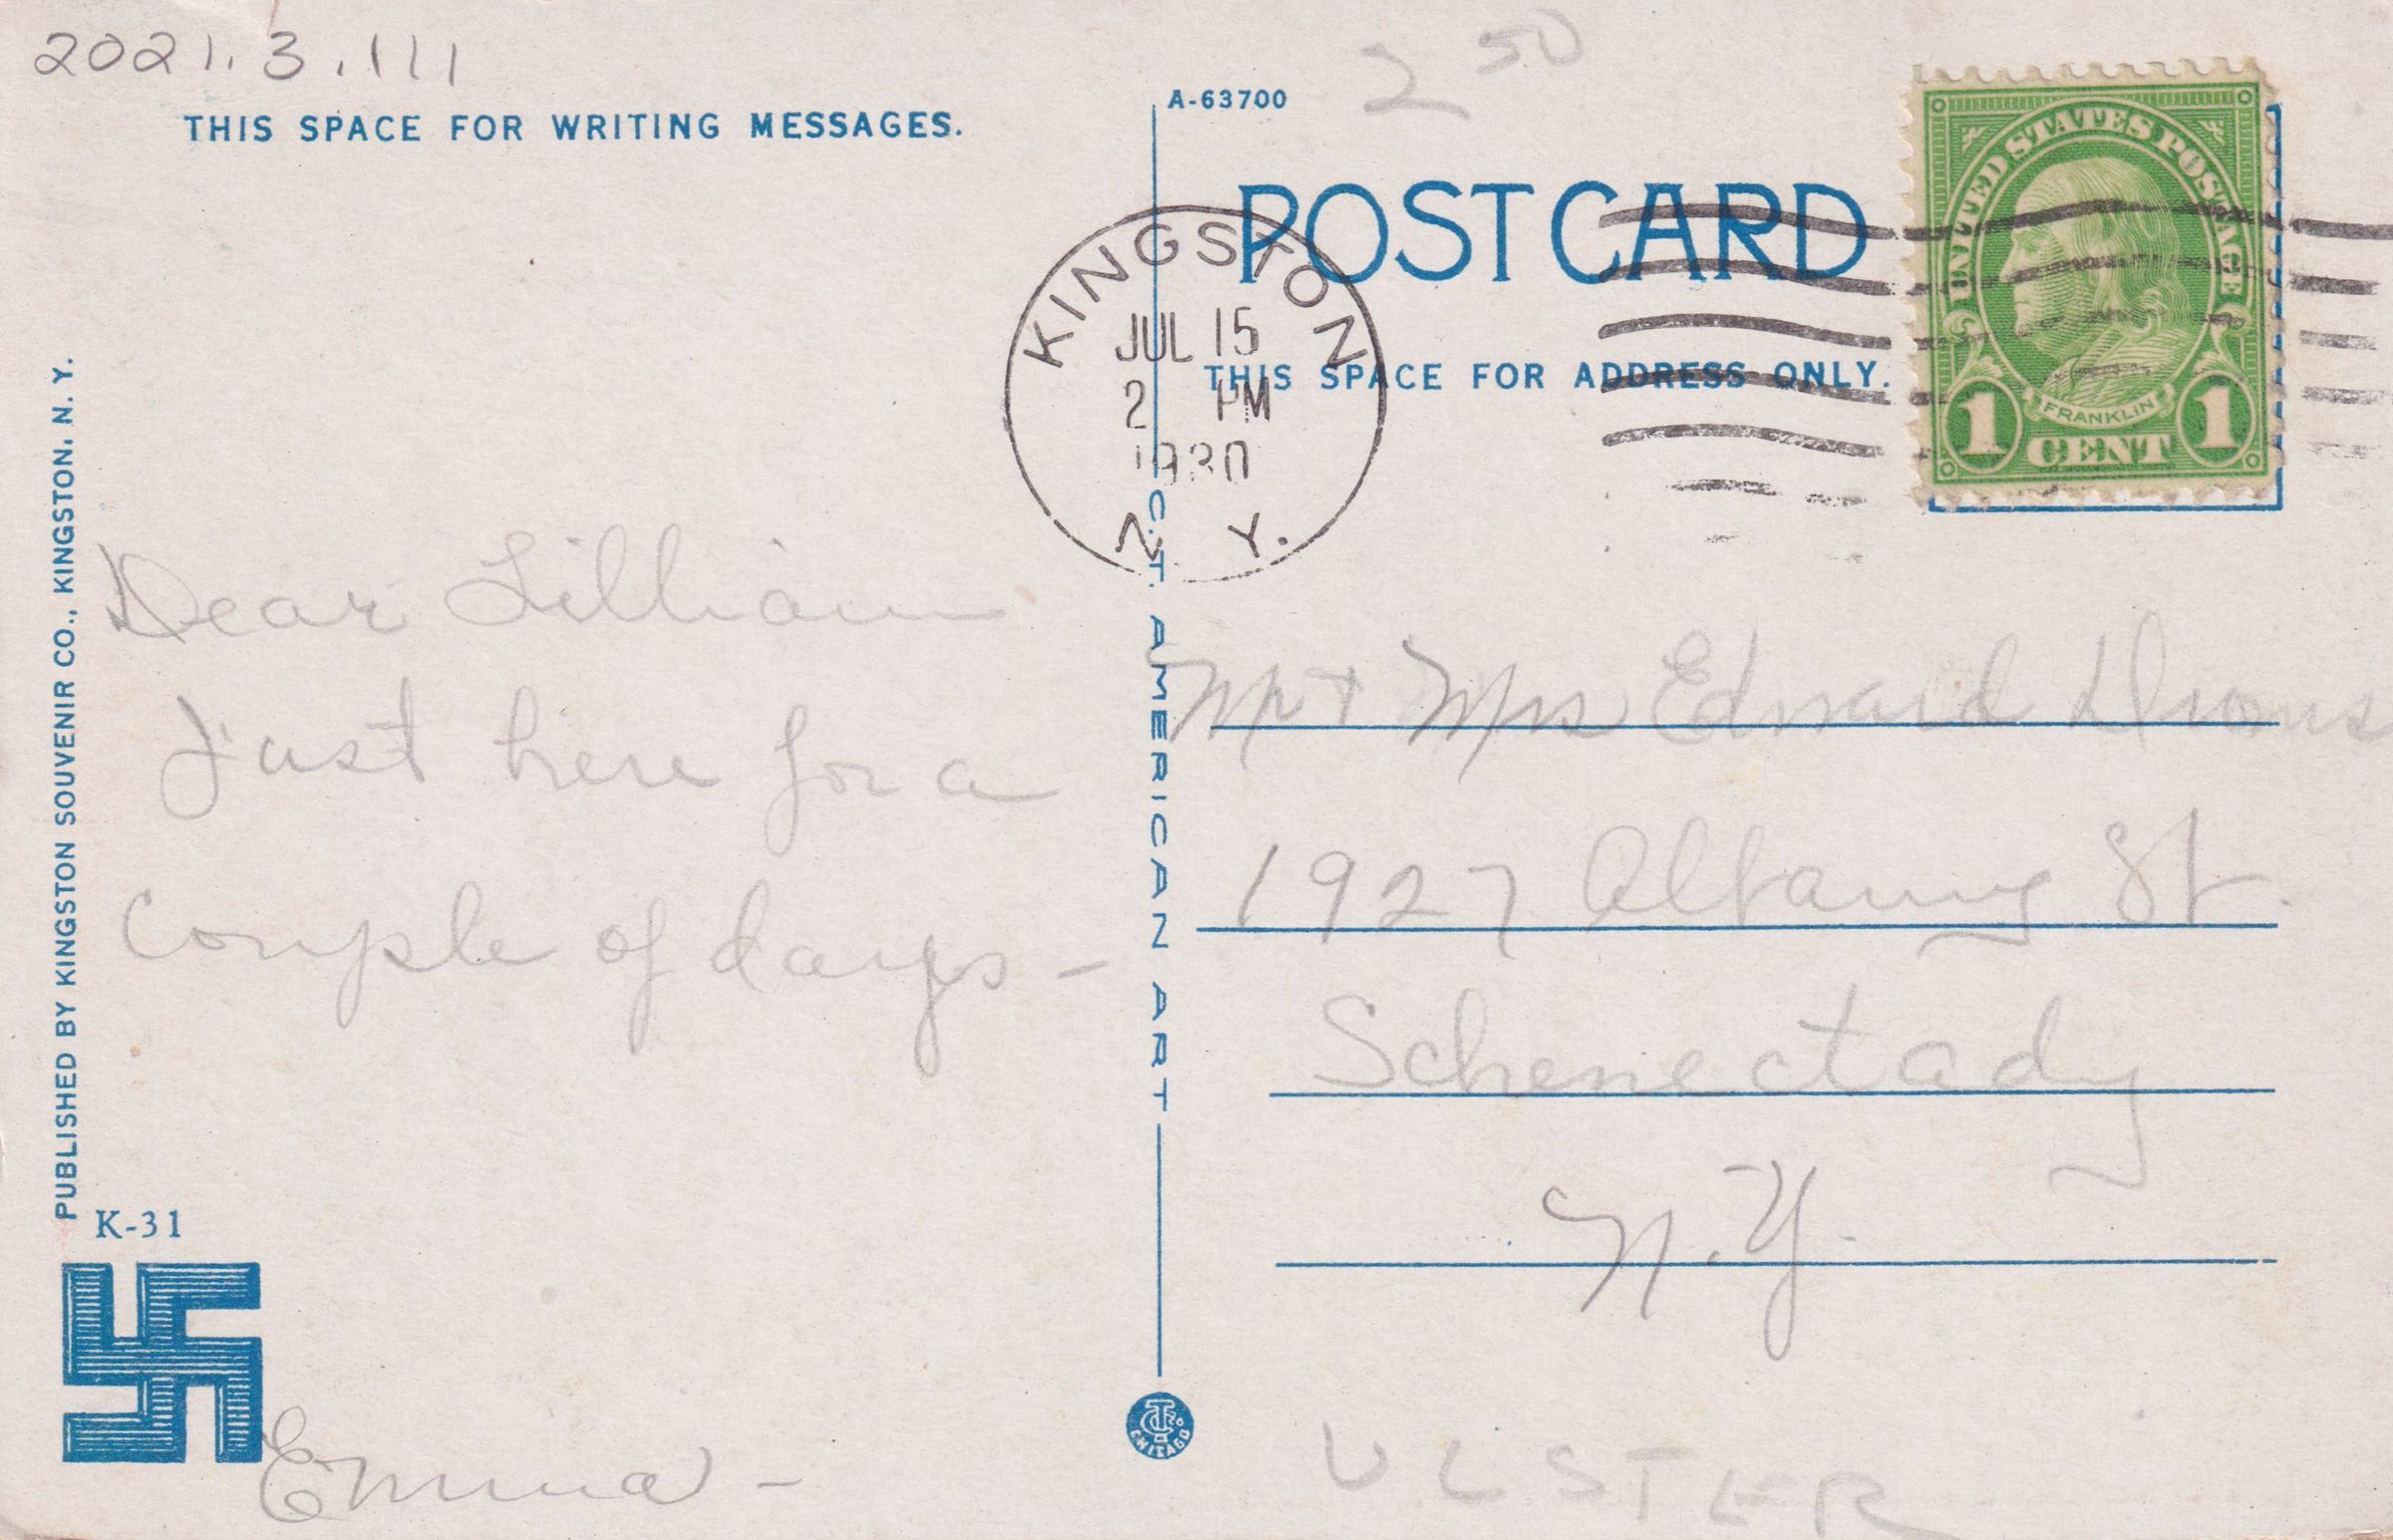 2021.3.111
THIS SPACE FOR WRITING MESSAGES.
A-63700
2 50
POST CARD
THIS SPACE FOR ADDRESS ONLY.
KINGSTON
JUL 15
2 PM
1930
N. Y.
UNITED STATES POSTAGE
FRANKLIN
1 CENT 1
PUBLISHED BY KINGSTON SOUVENIR CO., KINGSTON, N. Y.
C.T. AMERICAN ART
Dear Lillian
Just here for a
Couple of days -
Emma -
Mr + Mrs Edward
1927 Albany St.
Schenectady
N.Y.
K-31
CHICAGO
ULSTER